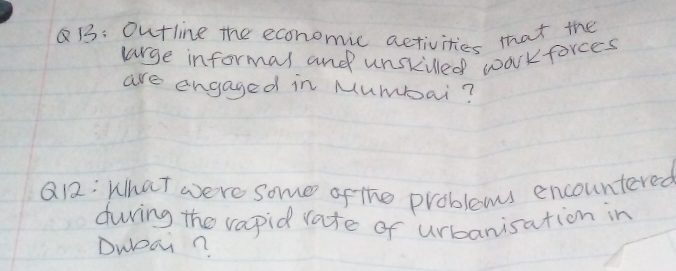 Q 13: Outline the economic activities that the
large informal and unskilled workforces
are engaged in Mumbai?
Q12: What were some of the problems encountered
during the rapid rate of urbanisation in
Dubai?